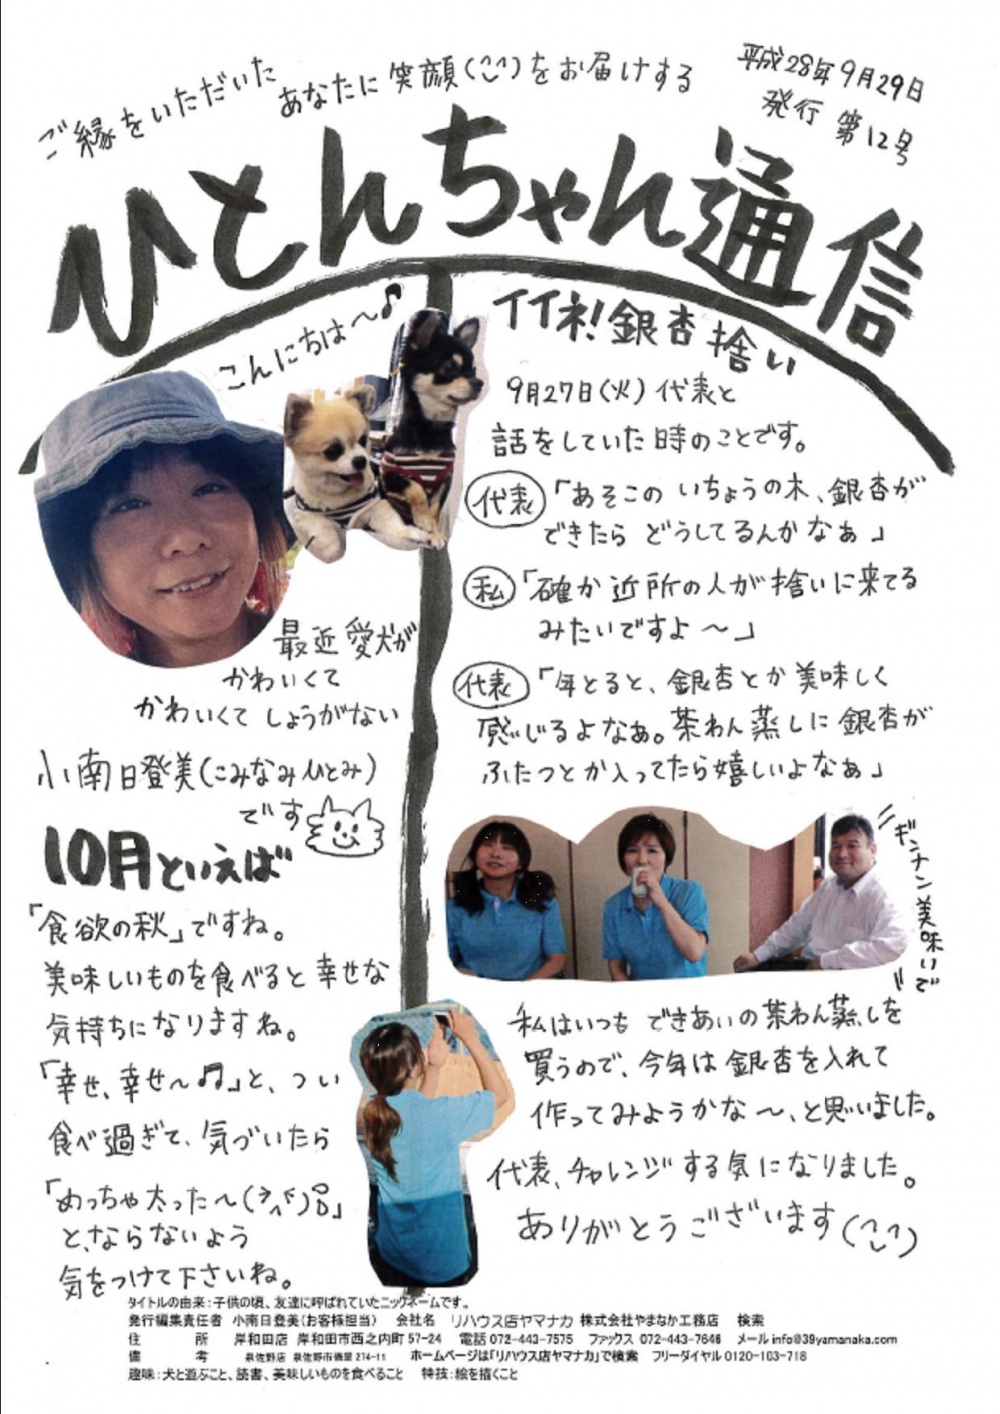 ご縁をいただいた
あなたに笑顔(^‿^)をお届けする
平成28年9月29日
発行 第12号
ひとんちゃん通信
こんにちは〜♪
最近愛犬が
かわいくて
かわいくてしょうがない
小南日登美(こみなみひとみ)
です
10月といえば
「食欲の秋」ですね。
美味しいものを食べると幸せな
気持ちになりますね。
「幸せ、幸せ〜♫」と、つい
食べ過ぎて、気づいたら
「めっちゃ太った〜
と、ならないよう
気をつけて下さいね。
イイネ!銀杏捨い
9月27日(火)代表と
話をしていた時のことです。
代表「あそこのいちょうの木、銀杏が
できたらどうしてるんかなぁ」
私「確か近所の人が捨いに来てる
みたいですよ〜」
代表「年とると、銀杏とか美味しく
感じるよなぁ。茶わん蒸しに銀杏が
ふたつとか入ってたら嬉しいよなぁ」
ギンナン美味いで
私はいつもできあいの茶わん蒸しを
買うので、今年は銀杏を入れて
作ってみようかな〜、と思いました。
代表、チャレンジする気になりました。
ありがとうございます(^‿^)
タイトルの由来:子供の頃、友達に呼ばれていたニックネームです。
発行編集責任者 小南日登美(お客様担当) 会社名 リハウス店ヤマナカ 株式会社やまなか工務店 検索
住 所 岸和田店 岸和田市西之内町57-24 電話 072-443-7575 ファックス 072-443-7646 メール info@39yamanaka.com
備 考 泉佐野店 泉佐野市 274-11 ホームページは「リハウス店ヤマナカ」で検索 フリーダイヤル0120-103-718
趣味:犬と遊ぶこと、読書、美味しいものを食べること 特技:絵を描くこと